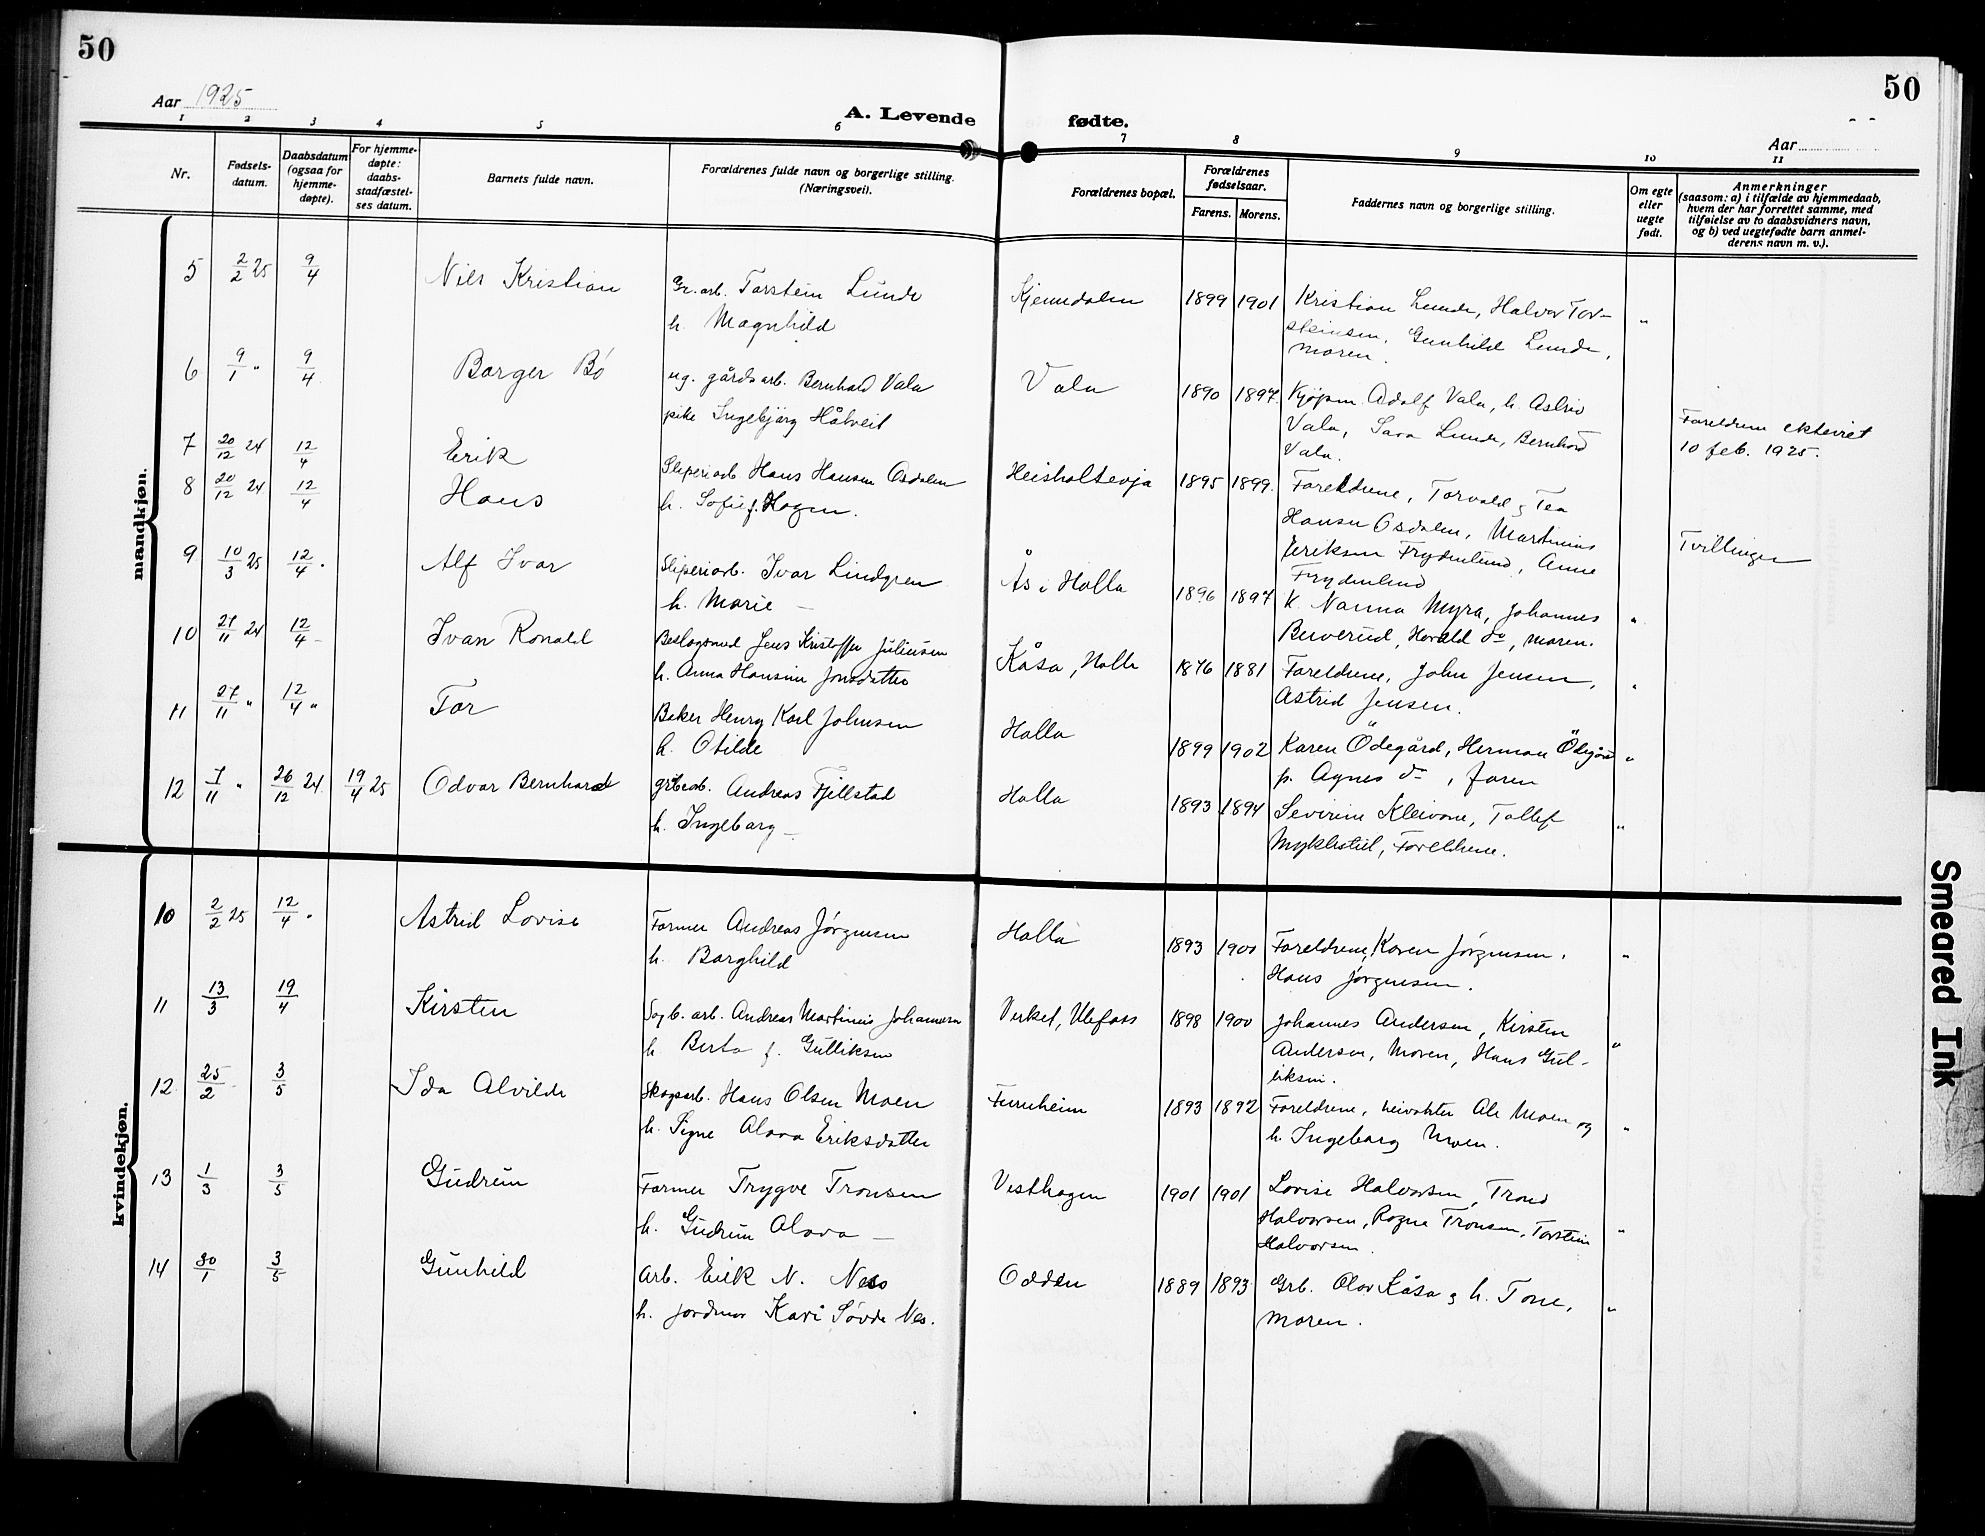 50
50
Aar 1925
A. Levende
fødte.
Aar
1 2 3 4 5 6 7 8 9 10 11
Nr.
Fødsels-
datum.
Daabsdatum
(ogsaa for
hjemme-
døpte).
For hjemme-
døpte:
daabs-
stadfæstel-
ses datum.
Barnets fulde navn.
Forældrenes fulde navn og borgerlige stilling.
(Næringsvei).
Forældrenes bopæl.
Forældrenes
fødselsaar.
Farens. Morens.
Faddernes navn og borgerlige stilling.
Om egte
eller
uegte
født.
Anmerkninger
(saasom: a) i tilfælde av hjemmedaab,
hvem der har forrettet samme, med
tilføielse av to daabsvidners navn,
og b) ved uegtefødte barn anmel-
derens navn m. v.).
mandkjøn.
5 2/2 25 9/4 Nils Kristian Gr. arb. Torstein Lunde
h. Magnhild
Kjenndalen 1899 1901 Kristian Lunde, Halvor Tor-
steinsen, Gunhild Lunde,
moren.
6 9/1 " 9/4 Borger Bö ug. gårdsarb. Bernhard Vala
pike Ingebjörg Håtveit
Vala 1890 1897 Kjöpm. Adolf Vala, h. Astrid
Vala, Sara Lunde, Bernhard
Vala.
Foreldrene ekteviet
10 feb. 1925.
7 20/12 24 12/4 Erik
8 20/12 24 12/4 Hans
Sliperiarb. Hans Hansen Osdalen
h. Sofie f. Hagen.
Heisholtevja 1895 1899 Foreldrene, Torvald & Tea
Hansen Osdalen, Martinius
Eriksen Frydenlund, Anne
Frydenlund
Tvillinger
9 10/3 25 12/4 Alf Ivar Sliperiarb. Ivar Lindgren
h. Marie —
Ås i Holla 1896 1897 K. Nanna Myra, Johannes
Berverud, Harald do, moren.
10 27/11 24 12/4 Ivan Ronald Jens Kristoffer Juliussen
h. Anna Hansine Jonsdatter
Kåsa, Holla 1876 1881 Foreldrene, John Jensen,
Astrid Jensen.
11 27/11 " 12/4 " Tor Baker Henry Karl Johnsen
h. Otilde
Holla 1899 1902 Karen Ödegård, Herman Ödegård
p. Agnes do, faren
12 7/11 " 26/12 24 19/4 25 Odvar Bernhard grubearb. Andreas Fjellstad
h. Ingeborg —
Holla 1893 1894 Severine Kleivane, Tollef
Myklestul, Foreldrene.
kvindekjøn.
10 2/2 25 12/4 Astrid Lovise Former Andreas Jörgensen
h. Borghild
Holla 1893 1900 Foreldrene, Karen Jörgensen,
Hans Jörgensen.
11 13/3 19/4 Kirsten Sagb. arb. Andreas Martinius Johannesen
h. Berta f. Gulliksen
Verket, Ulefoss 1898 1900 Johannes Andersen, Kirsten
Andersen, Moren, Hans Gul-
liksen.
12 25/2 3/5 Ida Alvilde Skogsarb. Hans Olsen Moen
h. Signe Alava Eriksdatter
Furuheim 1893 1892 Foreldrene, veivokter Ole Moen og
h. Ingeborg Moen.
13 1/3 3/5 Gudrun Former Trygve Tronsen
h. Gudrun Olava —
Vesthagen 1901 1901 Lovise Halvorsen, Trond
Halvorsen, Ragna Tronsen, Torstein
Halvorsen.
14 30/1 3/5 Gunhild Arb. Erik N. Nes
h. jordmor Kari Sövde Nes.
Odden 1889 1893 Grb. Olav Kåsa & h. Tone,
moren.
Smeared Ink